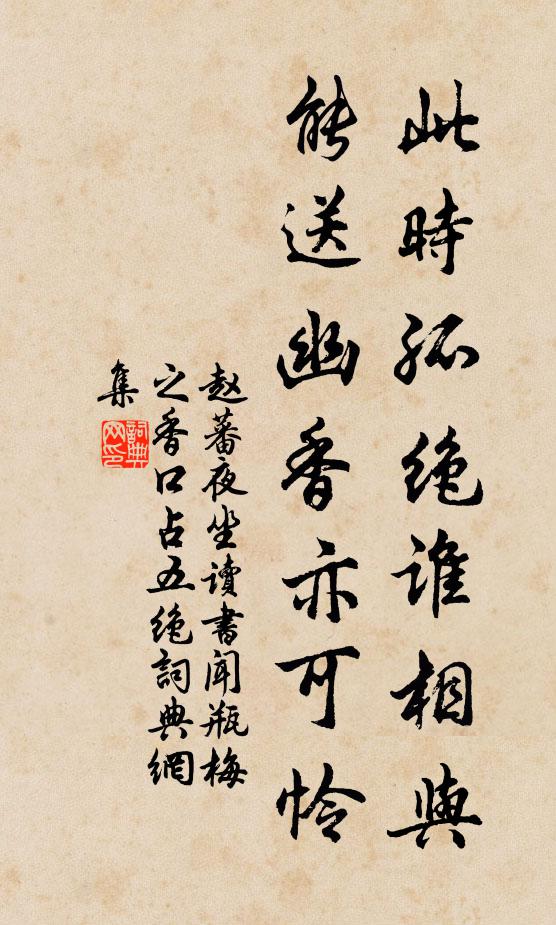 此時孤絶誰相與
能送幽香亦可怜
赵蕃夜坐讀書闻瓶梅
之香口占五絶詞典網
集
詞典
网印